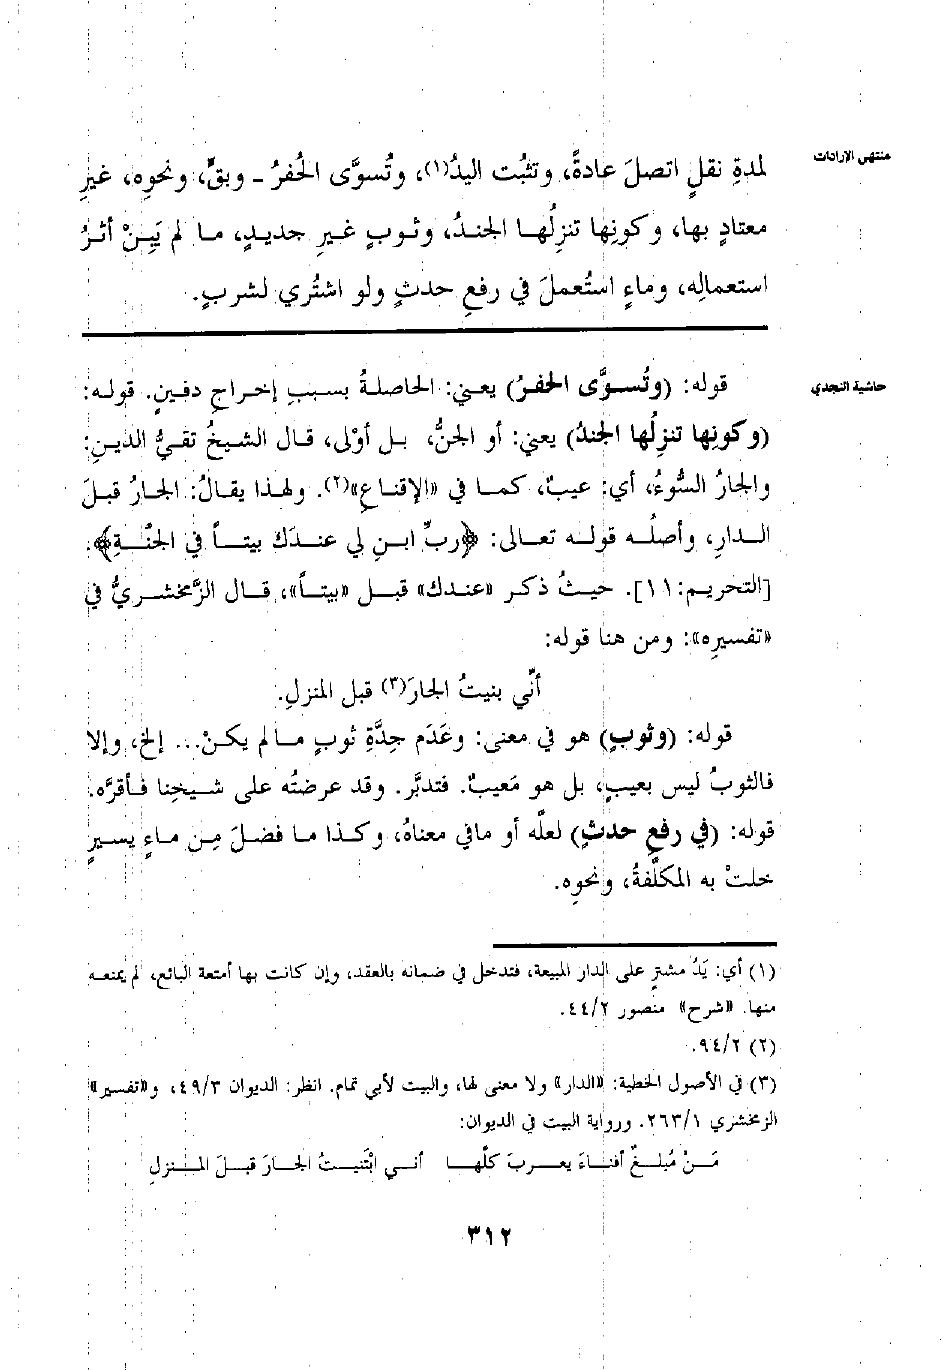 منتهى الإرادات
لمدةِ نقلٍ اتصلَ عادةً، وتثبت اليدُ(١)، وتُسوَّى الحُفرُ ـ وبقٌّ، ونحوِه، غيرِ
معتادٍ بها، وكونِها تنزِلُها الجندُ، وثوبٍ غيرِ جديدٍ، ما لم يَبِنْ أثرُ
استعمالِه، وماءٍ استُعملَ في رفعِ حدثٍ ولو اشتُري لشربٍ.
حاشية النجدي
قوله: (وتُسوَّى الحفرُ) يعني: الحاصلةُ بسببِ إخراجِ دفينٍ. قوله:
(وكونِها تنزِلُها الجندُ) يعني: أو الجنُّ، بل أوْلى، قال الشيخُ تقيُّ الدينِ:
والجارُ السُّوءُ، أي: عيبٌ، كما في «الإقناعِ»(٢). ولهذا يقالُ: الجارُ قبلَ
الدارِ، وأصلُه قوله تعالى: ﴿ربِّ ابنِ لي عندَك بيتاً في الجنَّةِ﴾.
[التحريم: ١١]. حيثُ ذكر «عندك» قبل «بيتاً»، قال الزَّمخشريُّ في
«تفسيرِه»: ومن هنا قوله:
أنِّي بنيتُ الجارَ(٣) قبل المنزلِ.
قوله: (وثوبٍ) هو في معنى: وعَدَمِ جِدَّةِ ثوبٍ ما لم يكنْ... إلخ، وإلا
فالثوبُ ليس بعيبٍ، بل هو مَعيبٌ. فتدبَّر. وقد عرضتُه على شيخِنا فأقرَّه.
قوله: (في رفعِ حدثٍ) لعلَّه أو مافي معناهُ، وكذا ما فضلَ مِن ماءٍ يسيرٍ
خلتْ به المكلَّفةُ، ونحوِه.
(١) أي: يَدُ مشترٍ على الدار المبيعة، فتدخل في ضمانه بالعقد، وإن كانت بها أمتعة البائع، لم يمنعه
منها. «شرح» منصور ٤٤/٢.
(٢) ٩٤/٢.
(٣) في الأصول الخطية: «الدار» ولا معنى لها، والبيت لأبي تمام. انظر: الديوان ٤٩/٣، و«تفسير»
الزمخشري ٢٦٣/١. ورواية البيت في الديوان:
مَنْ مُبلغٌ أفناءَ يعربَ كلَّها أني ابْتَنيتُ الجارَ قبلَ المنزلِ
٣١٢